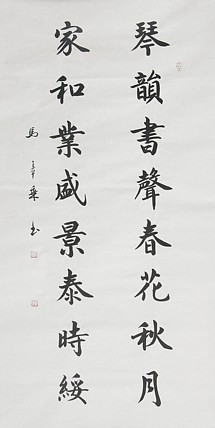 琴韻書聲春花秋月
家和業盛景泰時綏
馬